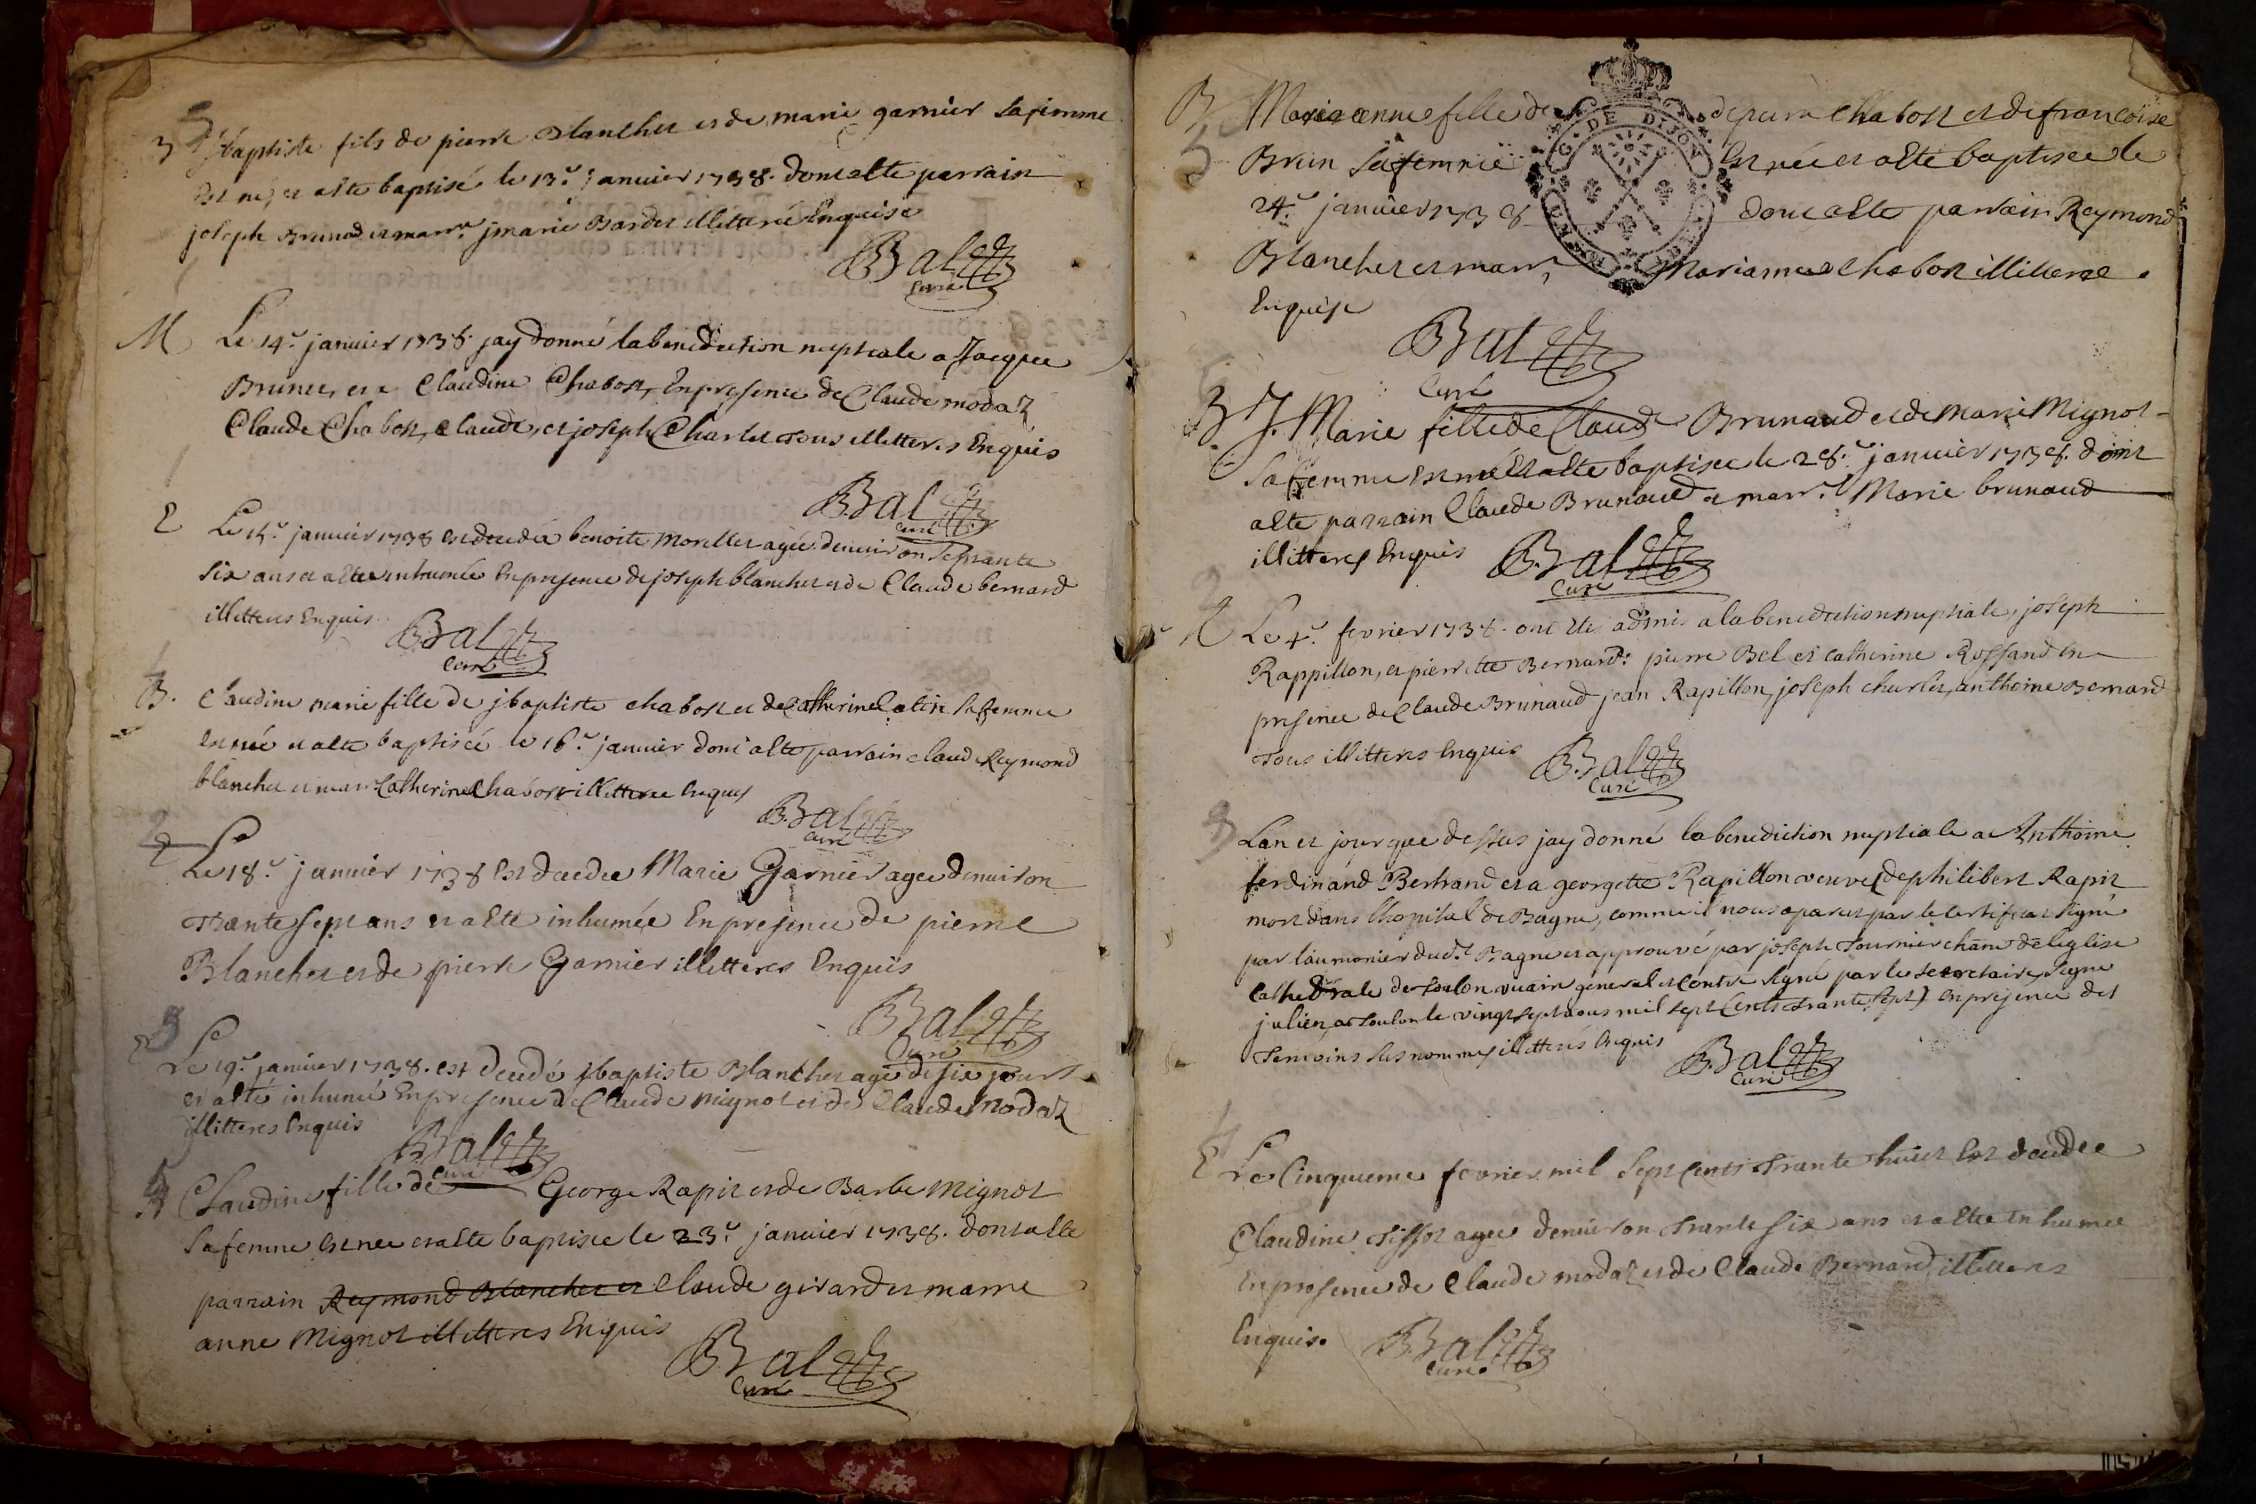 B
jbaptiste fils de pierre Blanchet et de marie garnier sa femme
est né, et a esté baptisé le 13.e janvier 1738. dont a esté parrain
joseph Brunod et marr.e jmarie Bardet illitteré Enquise
Bal
Curé
M
Le 14.e janvier 1738. jay donné la benediction nuptiale a Jacque
Brunet, et a Claudine Chabost, En presence de Claude modaz
Claude Chabost, Claude, et joseph Charlet tous illitteres Enquis
Bal
Curé
E
Le 15.e janvier 1738 est decedéé benoite Morellet agée denuiron septante
six ans et a estée inhumée En presence de joseph blanchet et de Claude bernard
illitteres Enquis
Bal
Curé
B.
Claudine marie fille de jbaptiste chabost et de Catherine Catin sa femme
est née et a esté baptiséé le 16.e janvier dont a esté parrain claude Reymond
blanchet et marr. Catherine Chabost illitteree Enquis
Bal
Curé
E
Le 18.e janvier 1738 Est decedee Marie Garnier agee denuiron
trante sept ans et a esté inhumée En presence de pierre
Blanchet et de pierre Garnier illitteres Enquis
Bal
Curé
E
Le 19.e janvier 1738. est decedé jbaptiste Blanchet agé de six jours
et a esté inhumé En presence de Claude mignot et de Claude Modaz
illitteres Enquis
Bal
Curé
B
Claudine fille de George Rapit et de Barbe Mignot
sa femme est nee et a esté baptisee le 23.e janvier 1738. dont a esté
parrain Reymond Blanchet et Claude girard et marre
anne Mignot illitteres Enquis
Bal
Curé
B
Marie anne fille de de pierre Chabost et de francoise
G. DE DIJON
Brun sa femme Est née et a esté baptisee le
24.e janvier 1738 dont a esté parrain Reymond
Blanchet et marr. Marianne chabost illitteree.
Enquise
Bal
Curé
B
J. Marie fille de Claude Brunaud et de Marie Mignot
sa femme est née Et a esté baptisee le 28.e janvier 1738. dont
a esté parrain Claude Brunaud et marr.e Marie brunaud
illitteres Enquis
Bal
Curé
M
Le 4.e fevrier 1738. ont été admis a la benediction nuptiale, joseph
Rappillon, et pierrette Bernard: pierre Bel et catherine Rossand en
presence de Claude Brunaud jean Rapillon, joseph charlet, anthoine Bernard
tous illitteres Enquis
Bal
Curé
Lan et jour que dessus jay donné la benediction nuptiale a Anthoine
ferdinand Bertrand et a georgette Rapillon veuve (de philibert Rapit
mort dans lhopital de Bagne, comme il nous aparut par le certificat signé
par laumonier dud.t Bagne et approuvé par joseph tournier chan.e de leglise
cathedrale de toulon vicaire general et contre signé par le secretaire, signe
julien, a toulon le vingt sept aoust mil sept cents trante sept) en presence des
temoins sus nommes illitterés Enquis
Bal
Curé
E
Le Cinquieme fevrier mil sept cents trante huict Est decedee
Claudine tissot agee denuiron trante six ans et a estee inhumee
En presence de Claude modaz et de Claude Bernard illitteres
Enquis.
Bal
Curé